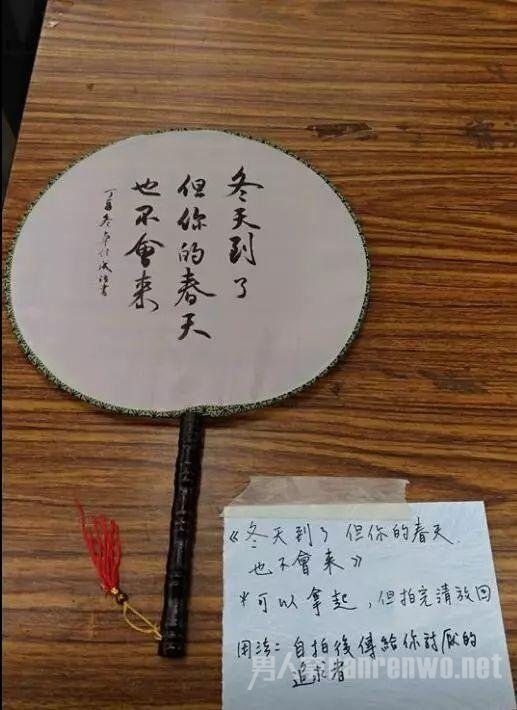 冬天到了
但你的春天
也不會來
《冬天到了 但你的春天
也不會來》
*可以拿起，但拍完請放回
用法：自拍後傳給你討厭的
追求者
nanrenwo.net